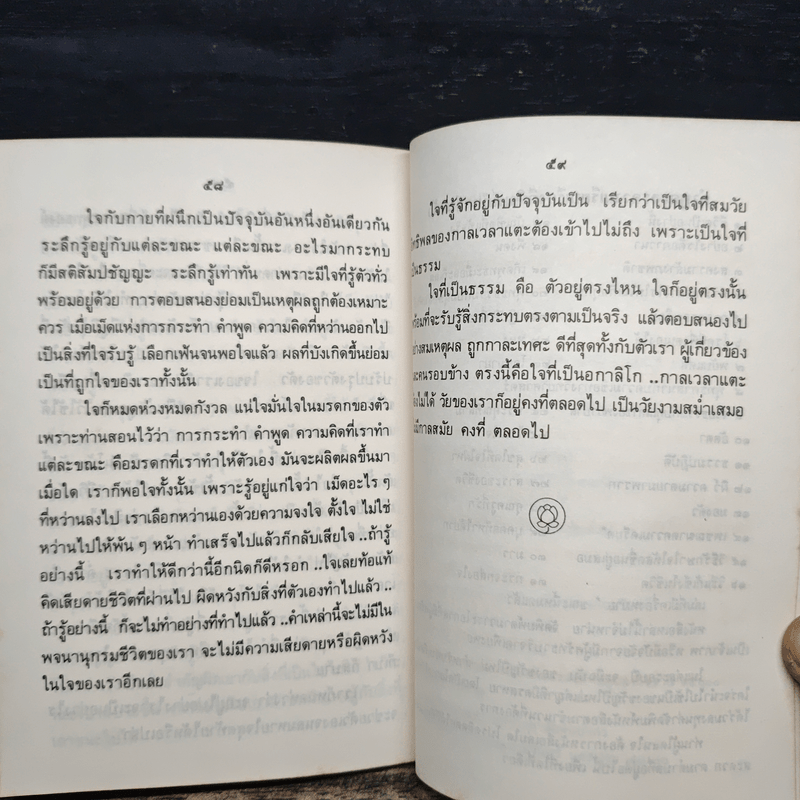 ๕๘
ใจกับกายที่ผนึกเป็นปัจจุบันอันหนึ่งอันเดียวกัน
ระลึกรู้อยู่กับแต่ละขณะ แต่ละขณะ อะไรมากระทบ
ก็มีสติสัมปชัญญะ ระลึกรู้เท่าทัน เพราะมีใจที่รู้ตัวทั่ว
พร้อมอยู่ด้วย การตอบสนองย่อมเป็นเหตุผลถูกต้องเหมาะ
ควร เมื่อเม็ดแห่งการกระทำ คำพูด ความคิดที่หว่านออกไป
เป็นสิ่งที่ใจรับรู้ เลือกเฟ้นจนพอใจแล้ว ผลที่บังเกิดขึ้นย่อม
เป็นที่ถูกใจของเราทั้งนั้น
ใจก็หมดห่วงหมดกังวล แน่ใจมั่นใจในมรดกของตัว
เพราะท่านสอนไว้ว่า การกระทำ คำพูด ความคิดที่เราทำ
แต่ละขณะ คือมรดกที่เราทำให้ตัวเอง มันจะผลิตผลขึ้นมา
เมื่อใด เราก็พอใจทั้งนั้น เพราะรู้อยู่แก่ใจว่า เม็ดอะไร ๆ
ที่หว่านลงไป เราเลือกหว่านเองด้วยความจงใจ ตั้งใจ ไม่ใช่
หว่านไปให้พ้น ๆ หน้า ทำเสร็จไปแล้วก็กลับเสียใจ ..ถ้ารู้
อย่างนี้ เราทำให้ดีกว่านี้อีกนิดก็ดีหรอก ..ใจเลยท้อแท้
คิดเสียดายชีวิตที่ผ่านไป ผิดหวังกับสิ่งที่ตัวเองทำไปแล้ว ..
ถ้ารู้อย่างนี้ ก็จะไม่ทำอย่างที่ทำไปแล้ว ..คำเหล่านี้จะไม่มีใน
พจนานุกรมชีวิตของเรา จะไม่มีความเสียดายหรือผิดหวัง
ในใจของเราอีกเลย
๕๙
ใจที่รู้จักอยู่กับปัจจุบันเป็น เรียกว่าเป็นใจที่สมวัย
ของกาลเวลาแตะต้องเข้าไปไม่ถึง เพราะเป็นใจที่
เป็นธรรม
ใจที่เป็นธรรม คือ ตัวอยู่ตรงไหน ใจก็อยู่ตรงนั้น
ที่จะรับรู้สิ่งกระทบตรงตามเป็นจริง แล้วตอบสนองไป
อย่างสมเหตุผล ถูกกาละเทศะ ดีที่สุดทั้งกับตัวเรา ผู้เกี่ยวข้อง
รอบข้าง ตรงนี้คือใจที่เป็นอกาลิโก ..กาลเวลาแตะ
ไม่ได้ วัยของเราก็อยู่คงที่ตลอดไป เป็นวัยงามสม่ำเสมอ
กาลสมัย คงที่ ตลอดไป